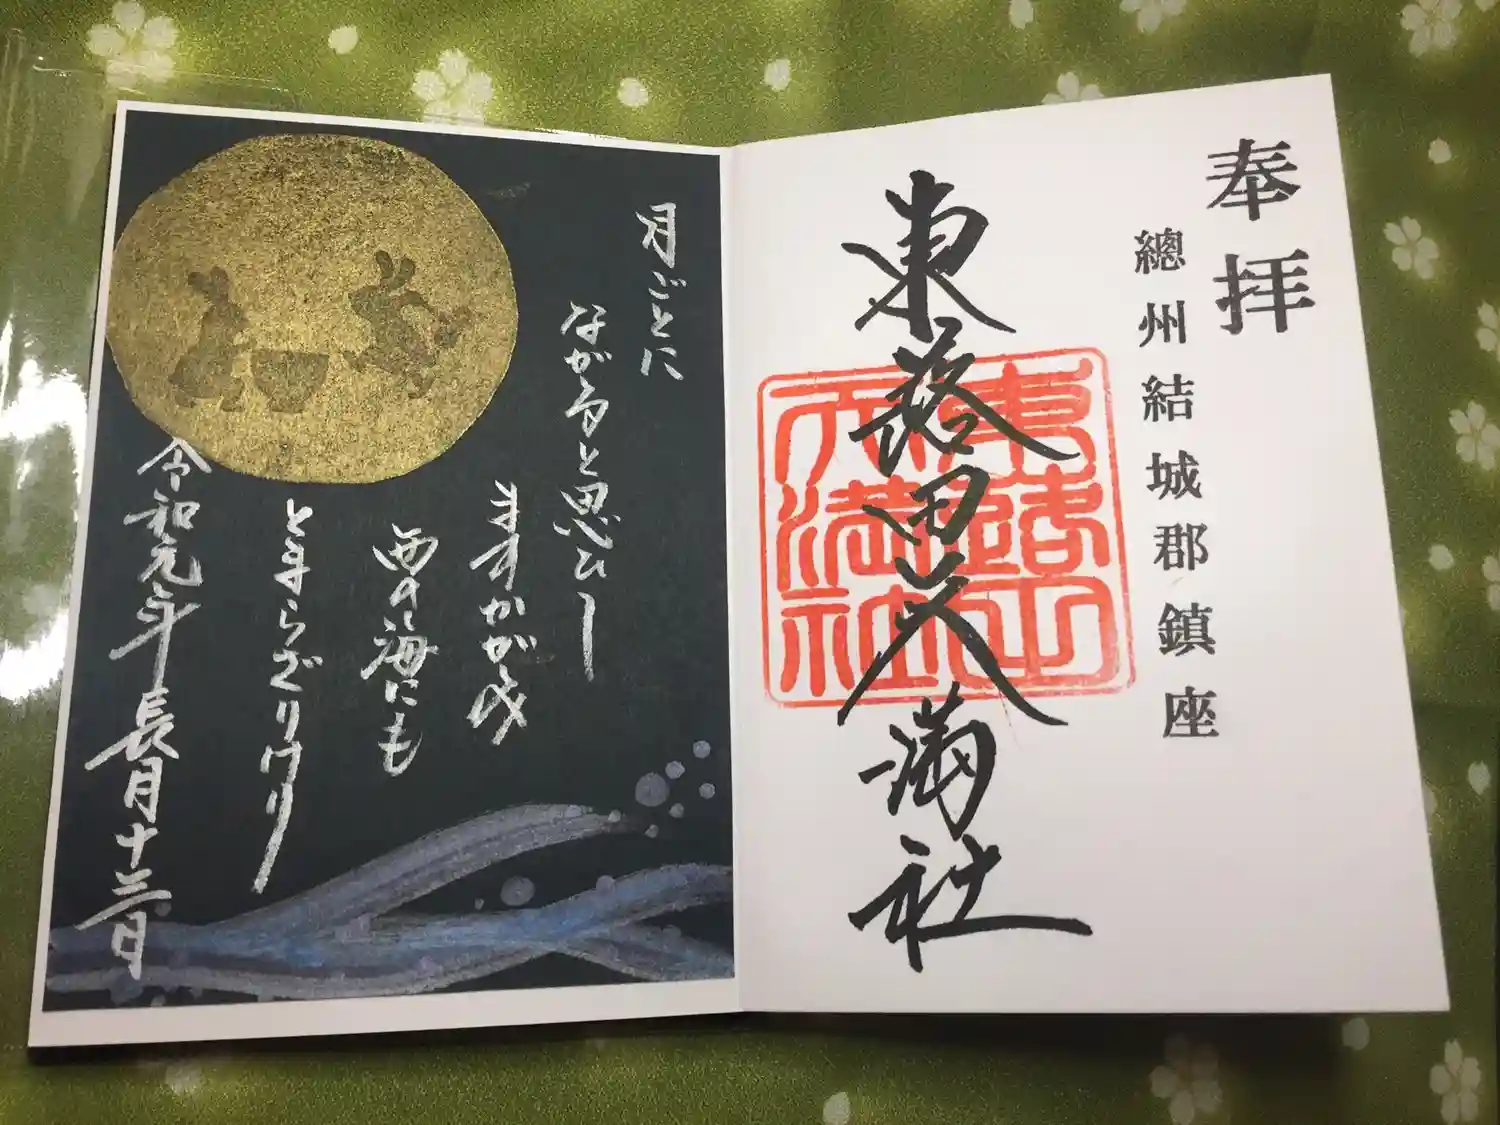 奉拝
總州結城郡鎮座
東蕗田天満社
月ごとに
ながると思ひし
ますかがみ
西の海にも
とまらざりけり
令和元年長月十三日